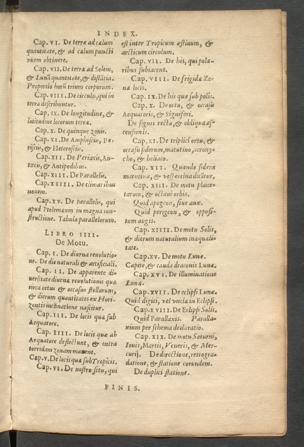 INDEX.
Cap. VI. De terræ ad cælum
quantitate, & ad cælum puncti
vicem obtinere.
Cap. VII. De terræ ad Solem,
& Lunã quantitate, & distãtia.
Proportio horũ trium corporum.
Cap. VIII. De circulo, qui in
terra distribuuntur.
Cap. IX. De longitudine, &
latitudine locorum terræ.
Cap. X. De quinque zonis.
Cap. XI. De Amphiscijs, Pe-
riscijs, & Heteroscijs.
Cap. XII. De Periœcis, An-
tœcis, & Antipodibus.
Cap. XIII. De Parallelis.
Cap. XIIII. De climatibus
Cap. XV. De parallelis, qui
apud Ptolemæum in magna con-
structione. Tabula parallelorum.
LIBRO IIII.
De Motu.
Cap. I. De diurna revolutio-
ne. De die naturali & artificiali.
Cap. II. De apparente di-
versitate diurnæ revolutionis quo
circa ortus & occasus stellarum,
& dierum quantitates ex Hori-
zontis inclinatione nascitur.
Cap. III. De locis quæ sub
Aequatore.
Cap. IIII. De locis quæ ab
Aequatore deflectunt, & intra
terridam zonam manent.
Cap. V. De locis quæ sub Tropicis.
Cap. VI. De nostro situ, qui
est inter Tropicum æstiuum, &
arcticum circulum.
Cap. VII. De his, qui pola-
ribus subiacent.
Cap. VIII. De frigida Zo-
næ locis.
Cap. IX. De his quæ sub polis.
Cap. X. De ortu, & occasu
Aequatoris, & Signifert.
De signis recta, & obliqua as-
censionis.
Cap. XI. De triplici ortu, &
occasu siderum, matutino,
che, & heliaco.
Cap. XII. Quando sidera
matutina, & vespertina dicãtur.
Cap. XIII. De motu plane-
tarum, & octaui orbis.
Quid apogeon, siue aux.
Quid perigeon, & opposi-
tum augis.
Cap. XIIII. De motu Solis,
& dierum naturalium inæquali-
tate.
Cap. XV. De motu Lunæ.
Capite, & cauda draconis Lunæ.
Cap. XVI. De illuminatione
Lunæ.
Cap. XVII. De eclipsi Lunæ.
Quid digiti, vel vncia in Eclipsi.
Cap. XVIII. De Eclipsi Solis.
Quid Parallaxis. Paralla-
xium per schema declaratio.
Cap. XIX. De motu Saturni,
Iouis, Martis, Veneris, & Mer-
curij. De directione, retrogra-
datione, & statione eorundem.
De duplici statione.
FINIS.